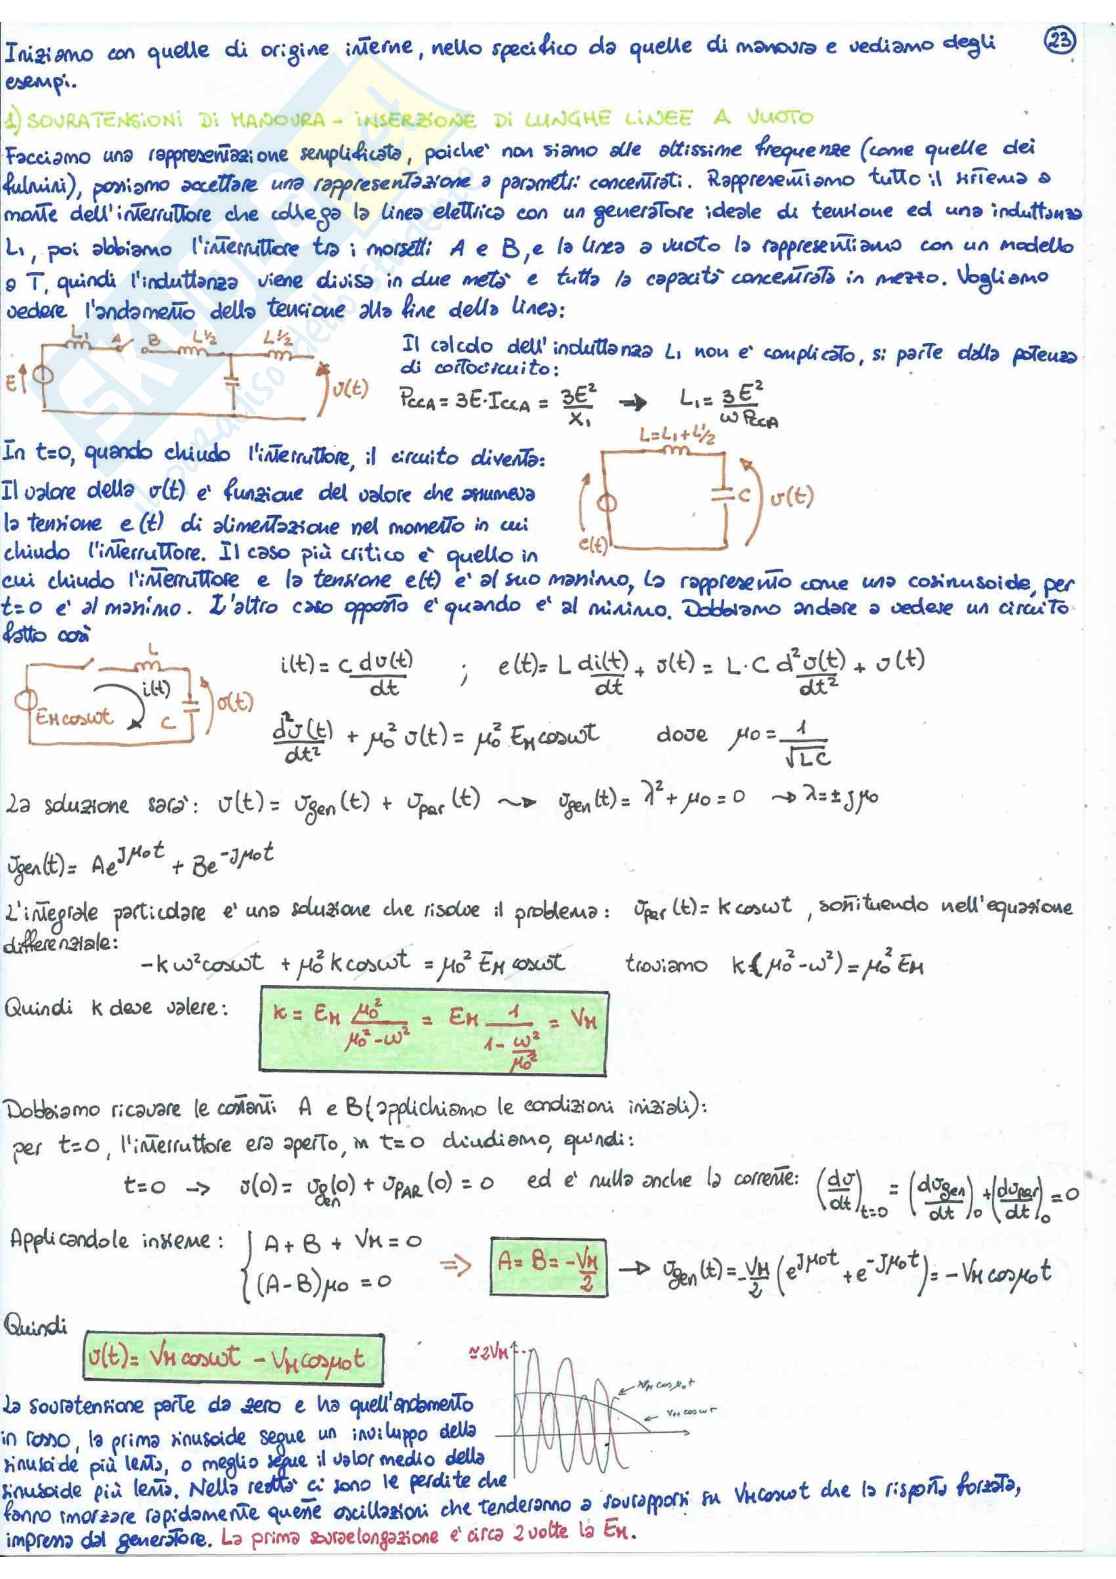 Iniziamo con quelle di origine interne, nello specifico da quelle di manovra e vediamo degli
23
esempi.
1) SOVRATENSIONI DI MANOVRA - INSERZIONE DI LUNGHE LINEE A VUOTO
Facciamo una rappresentazione semplificata, poiche' non siamo alle altissime frequenze (come quelle dei
fulmini), possiamo accettare una rappresentazione a parametri concentrati. Rappresentiamo tutto il sistema a
monte dell'interruttore che collega la linea elettrica con un generatore ideale di tensione ed una induttanza
L₁, poi abbiamo l'interruttore tra i morsetti A e B, e la linea a vuoto la rappresentiamo con un modello
a T, quindi l'induttanza viene divisa in due metà e tutta la capacità concentrata in mezzo. Vogliamo
vedere l'andamento della tensione alla fine della linea:
L₁ A B L'/2 L'/2
E v(t)
Il calcolo dell'induttanza L₁ non e' complicato, si parte dalla potenza
di cortocircuito:
PccA = 3E·IccA = 3E²/X₁ → L₁ = 3E²/ωPccA
L=L₁+L'/2
In t=0, quando chiudo l'interruttore, il circuito diventa:
Il valore della v(t) e' funzione del valore che assumeva
la tensione e(t) di alimentazione nel momento in cui
e(t) C v(t)
chiudo l'interruttore. Il caso più critico e' quello in
cui chiudo l'interruttore e la tensione e(t) e' al suo massimo, la rappresento come una cosinusoide, per
t=0 e' al massimo. L'altro caso opposto e' quando e' al minimo. Dobbiamo andare a vedere un circuito
fatto così
L i(t) EM cosωt C v(t)
i(t) = C dv(t)/dt ; e(t) = L di(t)/dt + v(t) = L·C d²v(t)/dt² + v(t)
d²v(t)/dt² + μ₀² v(t) = μ₀² EM cosωt dove μ₀ = 1/√LC
La soluzione sarà: v(t) = vgen(t) + vpar(t) ⇝ vgen(t) = λ² + μ₀ = 0 → λ = ± jμ₀
vgen(t) = Ae^jμ₀t + Be^-jμ₀t
L'integrale particolare e' una soluzione che risolve il problema: vpar(t) = k cosωt, sostituendo nell'equazione
differenziale:
-kω²cosωt + μ₀² k cosωt = μ₀² EM cosωt troviamo k(μ₀²-ω²) = μ₀² EM
Quindi k deve valere: K = EM μ₀²/(μ₀²-ω²) = EM 1/(1-ω²/μ₀²) = VM
Dobbiamo ricavare le costanti A e B (applichiamo le condizioni iniziali):
per t=0, l'interruttore era aperto, in t=0 chiudiamo, quindi:
t=0 → v(0) = vgen(0) + vPAR(0) = 0 ed e' nulla anche la corrente: (dv/dt)t=0 = (dvgen/dt)0 + (dvpar/dt)0 = 0
Applicandole insieme: { A + B + VM = 0
(A-B)μ₀ = 0
⇒ A = B = -VM/2 → vgen(t) = -VM/2 (e^jμ₀t + e^-jμ₀t) = -VM cosμ₀t
Quindi
v(t) = VM cosωt - VM cosμ₀t
≃2VM
VM cosμ₀t
VM cosωt
La sovratensione parte da zero e ha quell'andamento
in rosso, la prima sinusoide segue un inviluppo della
sinusoide più lenta, o meglio segue il valor medio della
sinusoide più lenta. Nella realtà ci sono le perdite che
fanno smorzare rapidamente queste oscillazioni che tenderanno a sovrapporsi su VMcosωt che la risposta forzata,
impressa dal generatore. La prima sovraelongazione e' circa 2 volte la EM.